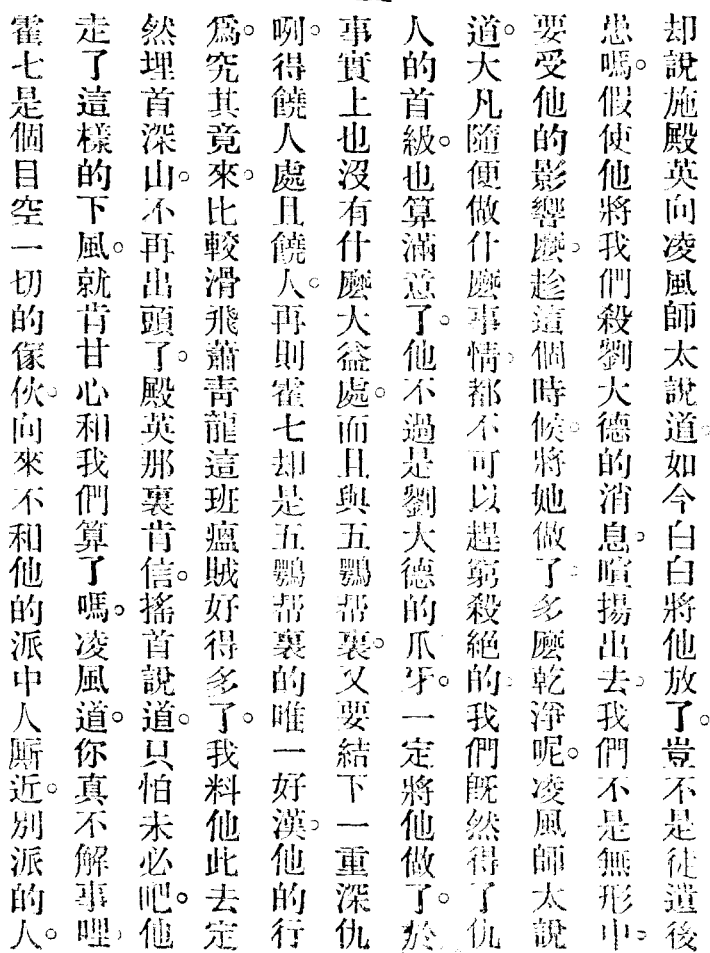 却說施殿英向凌風師太說道。如今白白將他放了。豈不是徒遺後
患嗎。假使他將我們殺劉大德的消息。喧揚出去。我們不是無形中。
要受他的影響麽。趁這個時候。將她做了。多麽乾淨呢。凌風師太說
道。大凡隨便做什麽事情。都不可以趕窮殺絕的。我們既然得了仇
人的首級。也算滿意了。他不過是劉大德的爪牙。一定將他做了。於
事實上也沒有什麽大益處。而且與五鸚帮裏。又要結下一重深仇
咧。得饒人處且饒人。再則霍七却是五鸚帮裏的唯一好漢。他的行
爲。究其竟來。比較滑飛蕭靑龍這班瘟賊好得多了。我料他此去定
然埋首深山。不再出頭了。殿英那裏肯信。搖首說道。只怕未必吧。他
走了這樣的下風。就肯甘心和我們算了嗎。凌風道。你真不解事哩。
霍七是個目空一切的傢伙。向來不和他的派中人厮近。別派的人。